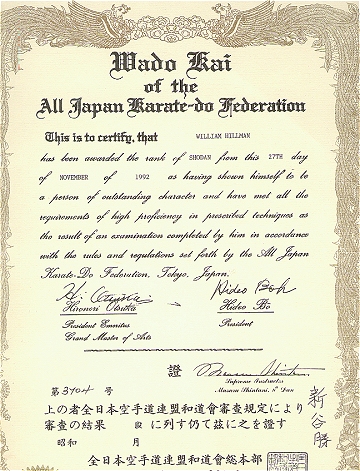 Wado Kai
of the
All Japan Karate-do Federation
This is to certify, that WILLIAM HILLMAN
has been awarded the rank of SHODAN from this 27TH day
of NOVEMBER of 1992 as having shown himself to be
a person of outstanding character and have met all the
requirements of high proficiency in prescribed techniques as
the result of an examination completed by him in accordance
with the rules and regulations set forth by the All Japan
Karate-Do Federation, Tokyo, Japan.
Hironori Otsuka
Hideo Bo
President Emeritus
President
Grand Master of Arts
證
Supreme Instructor
Masaru Shintani, 8th Dan
新谷勝
第3704号
上の者全日本空手道連盟和道會審査規定により
審査の結果 段に列す仍て茲に之を證す
昭和 月
全日本空手道連盟和道會総本部